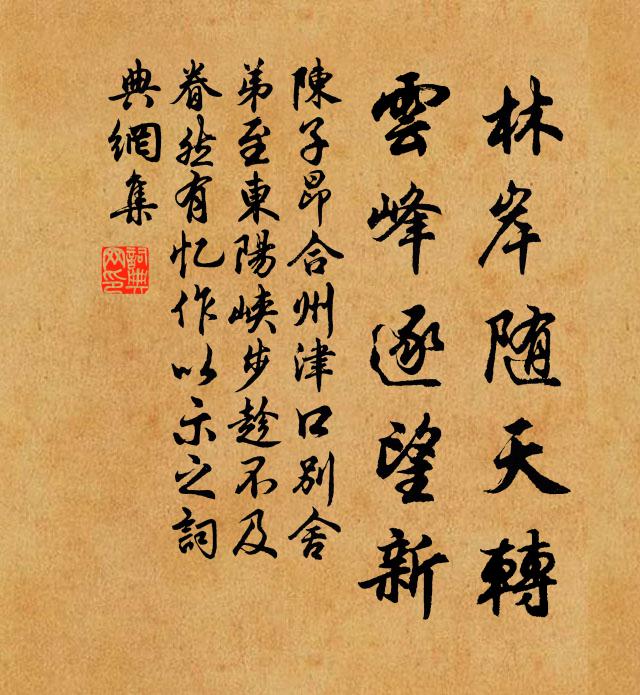 林岸随天轉
雲峰逐望新
陳子昂合州津口別舍
弟至東陽峽步趁不及
眷然有忆作以示之詞
典網集
詞典
网印